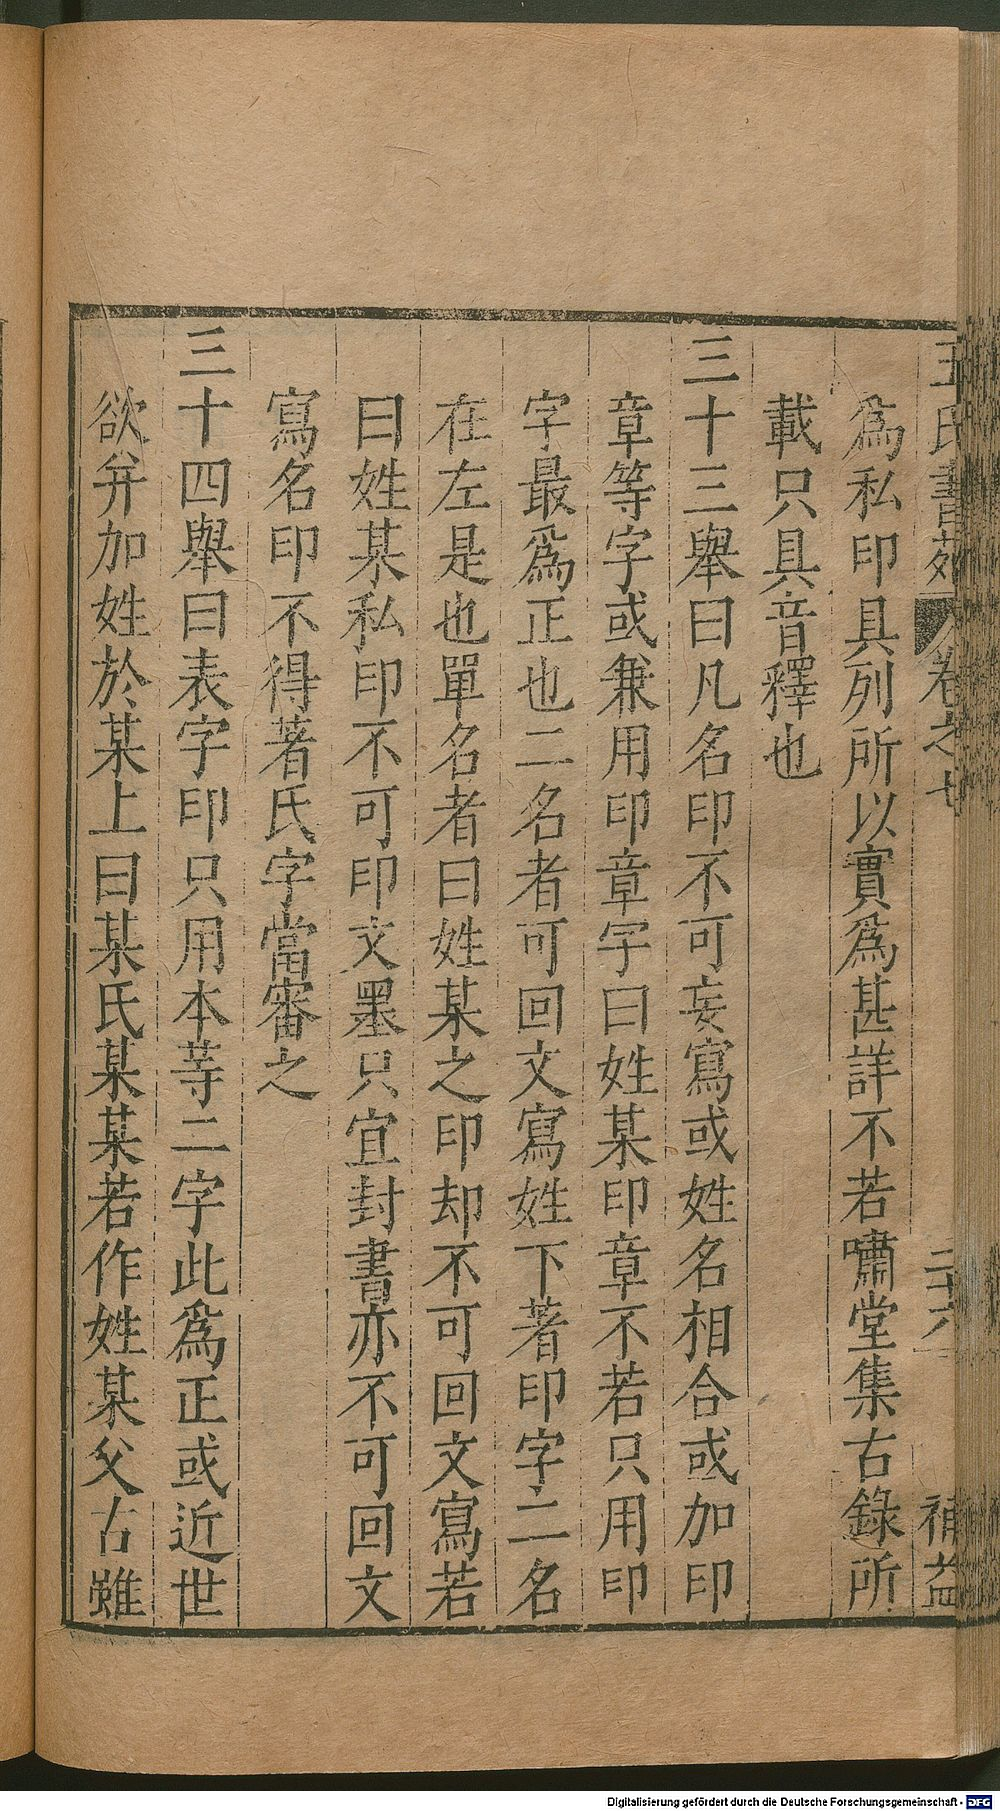 王氏書苑 卷之七 二十六 補益
爲私印具列所以實爲甚詳不若嘯堂集古錄所
載只具音釋也
三十三舉曰凡名印不可妄寫或姓名相合或加印
章等字或兼用印章字曰姓某印章不若只用印
字最爲正也二名者可回文寫姓下著印字二名
在左是也單名者曰姓某之印却不可回文寫若
曰姓某私印不可印文墨只宜封書亦不可回文
寫名印不得著氏字當審之
三十四舉曰表字印只用本等二字此爲正或近世
欲弁加姓於某上曰某氏某某若作姓某父古雖
Digitalisierung gefördert durch die Deutsche Forschungsgemeinschaft - DFG